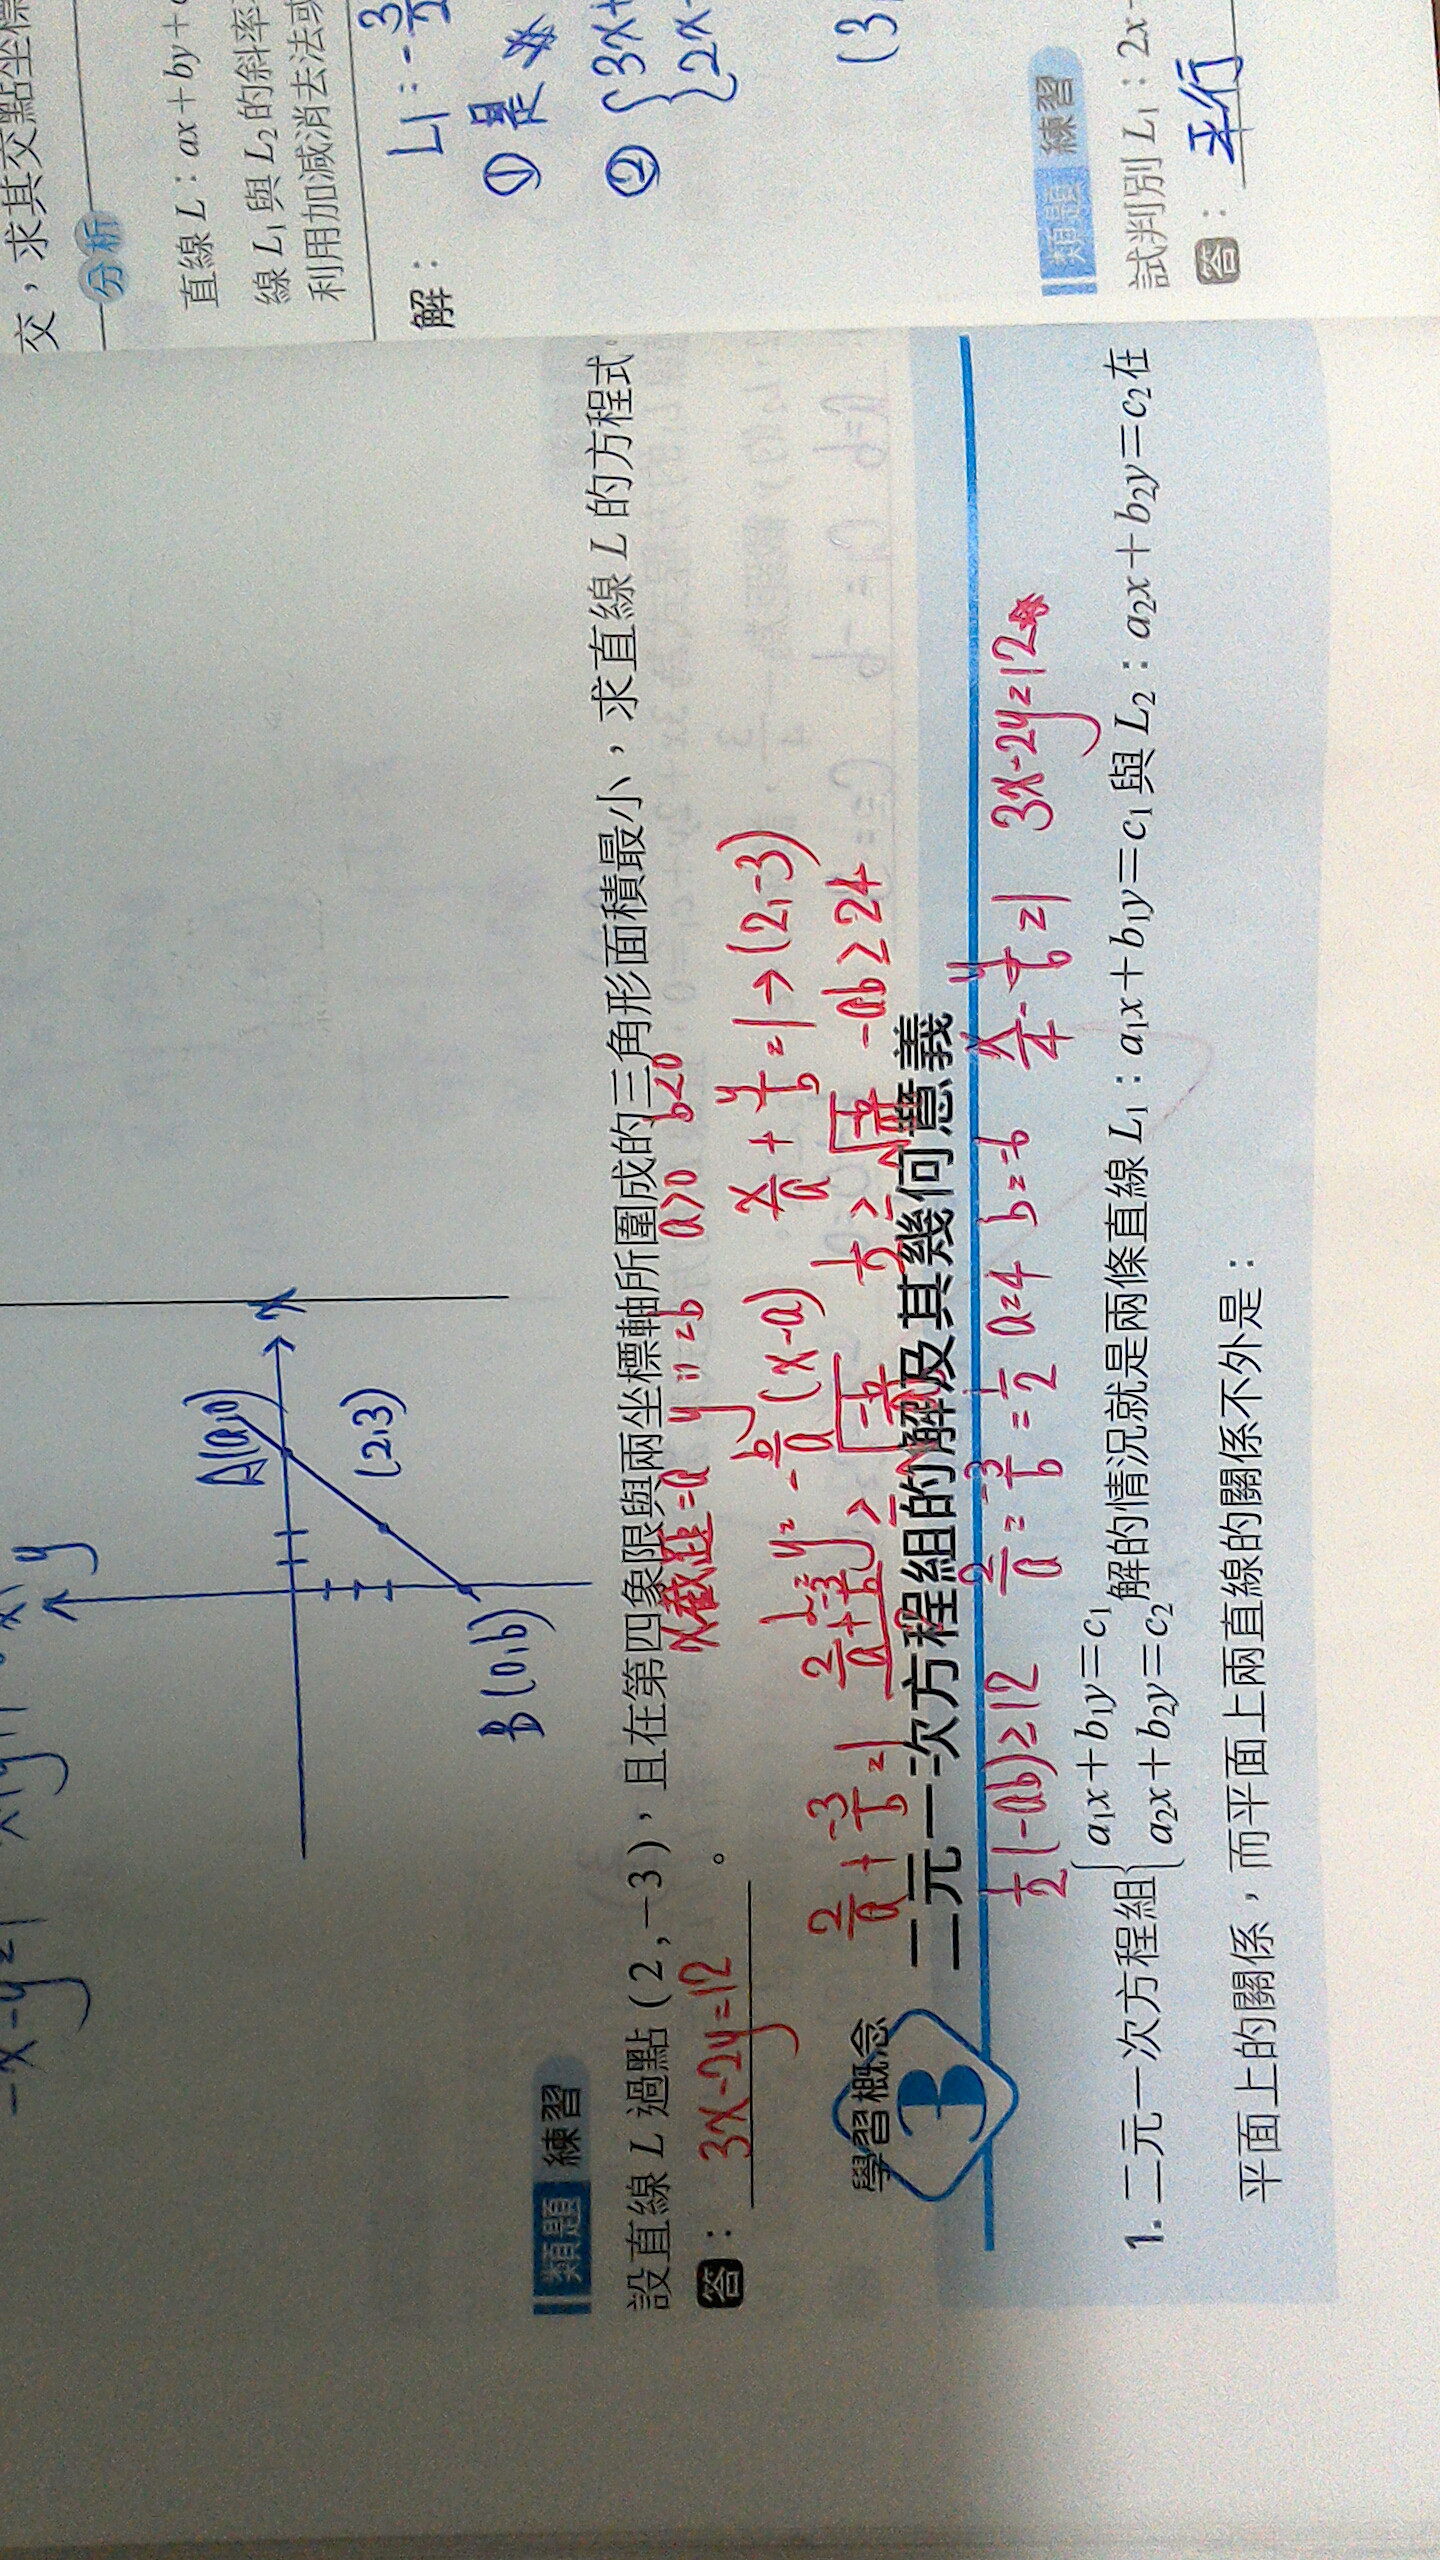 交，求其交點坐標
分析
直線 L：ax＋by＋
線 L₁ 與 L₂ 的斜率
利用加減消去法或
解：
L1：-3/2
① 是
② {3x+
2x-
(3
類題 練習
試判別 L₁：2x
答：平行
y
x
A(a,0)
(2,3)
B(0,b)
類題 練習
設直線 L 過點 (2,－3)，且在第四象限與兩坐標軸所圍成的三角形面積最小，求直線 L 的方程式
答：3x-2y=12。
x截距=a y〃=b a>0 b<0
L=y=-b/a(x-a) x/a+y/b=1→(2,-3)
2/a+-3/b=1
-ab≥24
學習概念 3 二元一次方程組的解及其幾何意義
1/2(-ab)≥12 2/a=-3/b=1/2 a=4 b=-6 x/4-y/6=1 3x-2y=12
1. 二元一次方程組{a₁x＋b₁y＝c₁ a₂x＋b₂y＝c₂ 解的情況就是兩條直線 L₁：a₁x＋b₁y＝c₁ 與 L₂：a₂x＋b₂y＝c₂ 在
平面上的關係，而平面上兩直線的關係不外是：